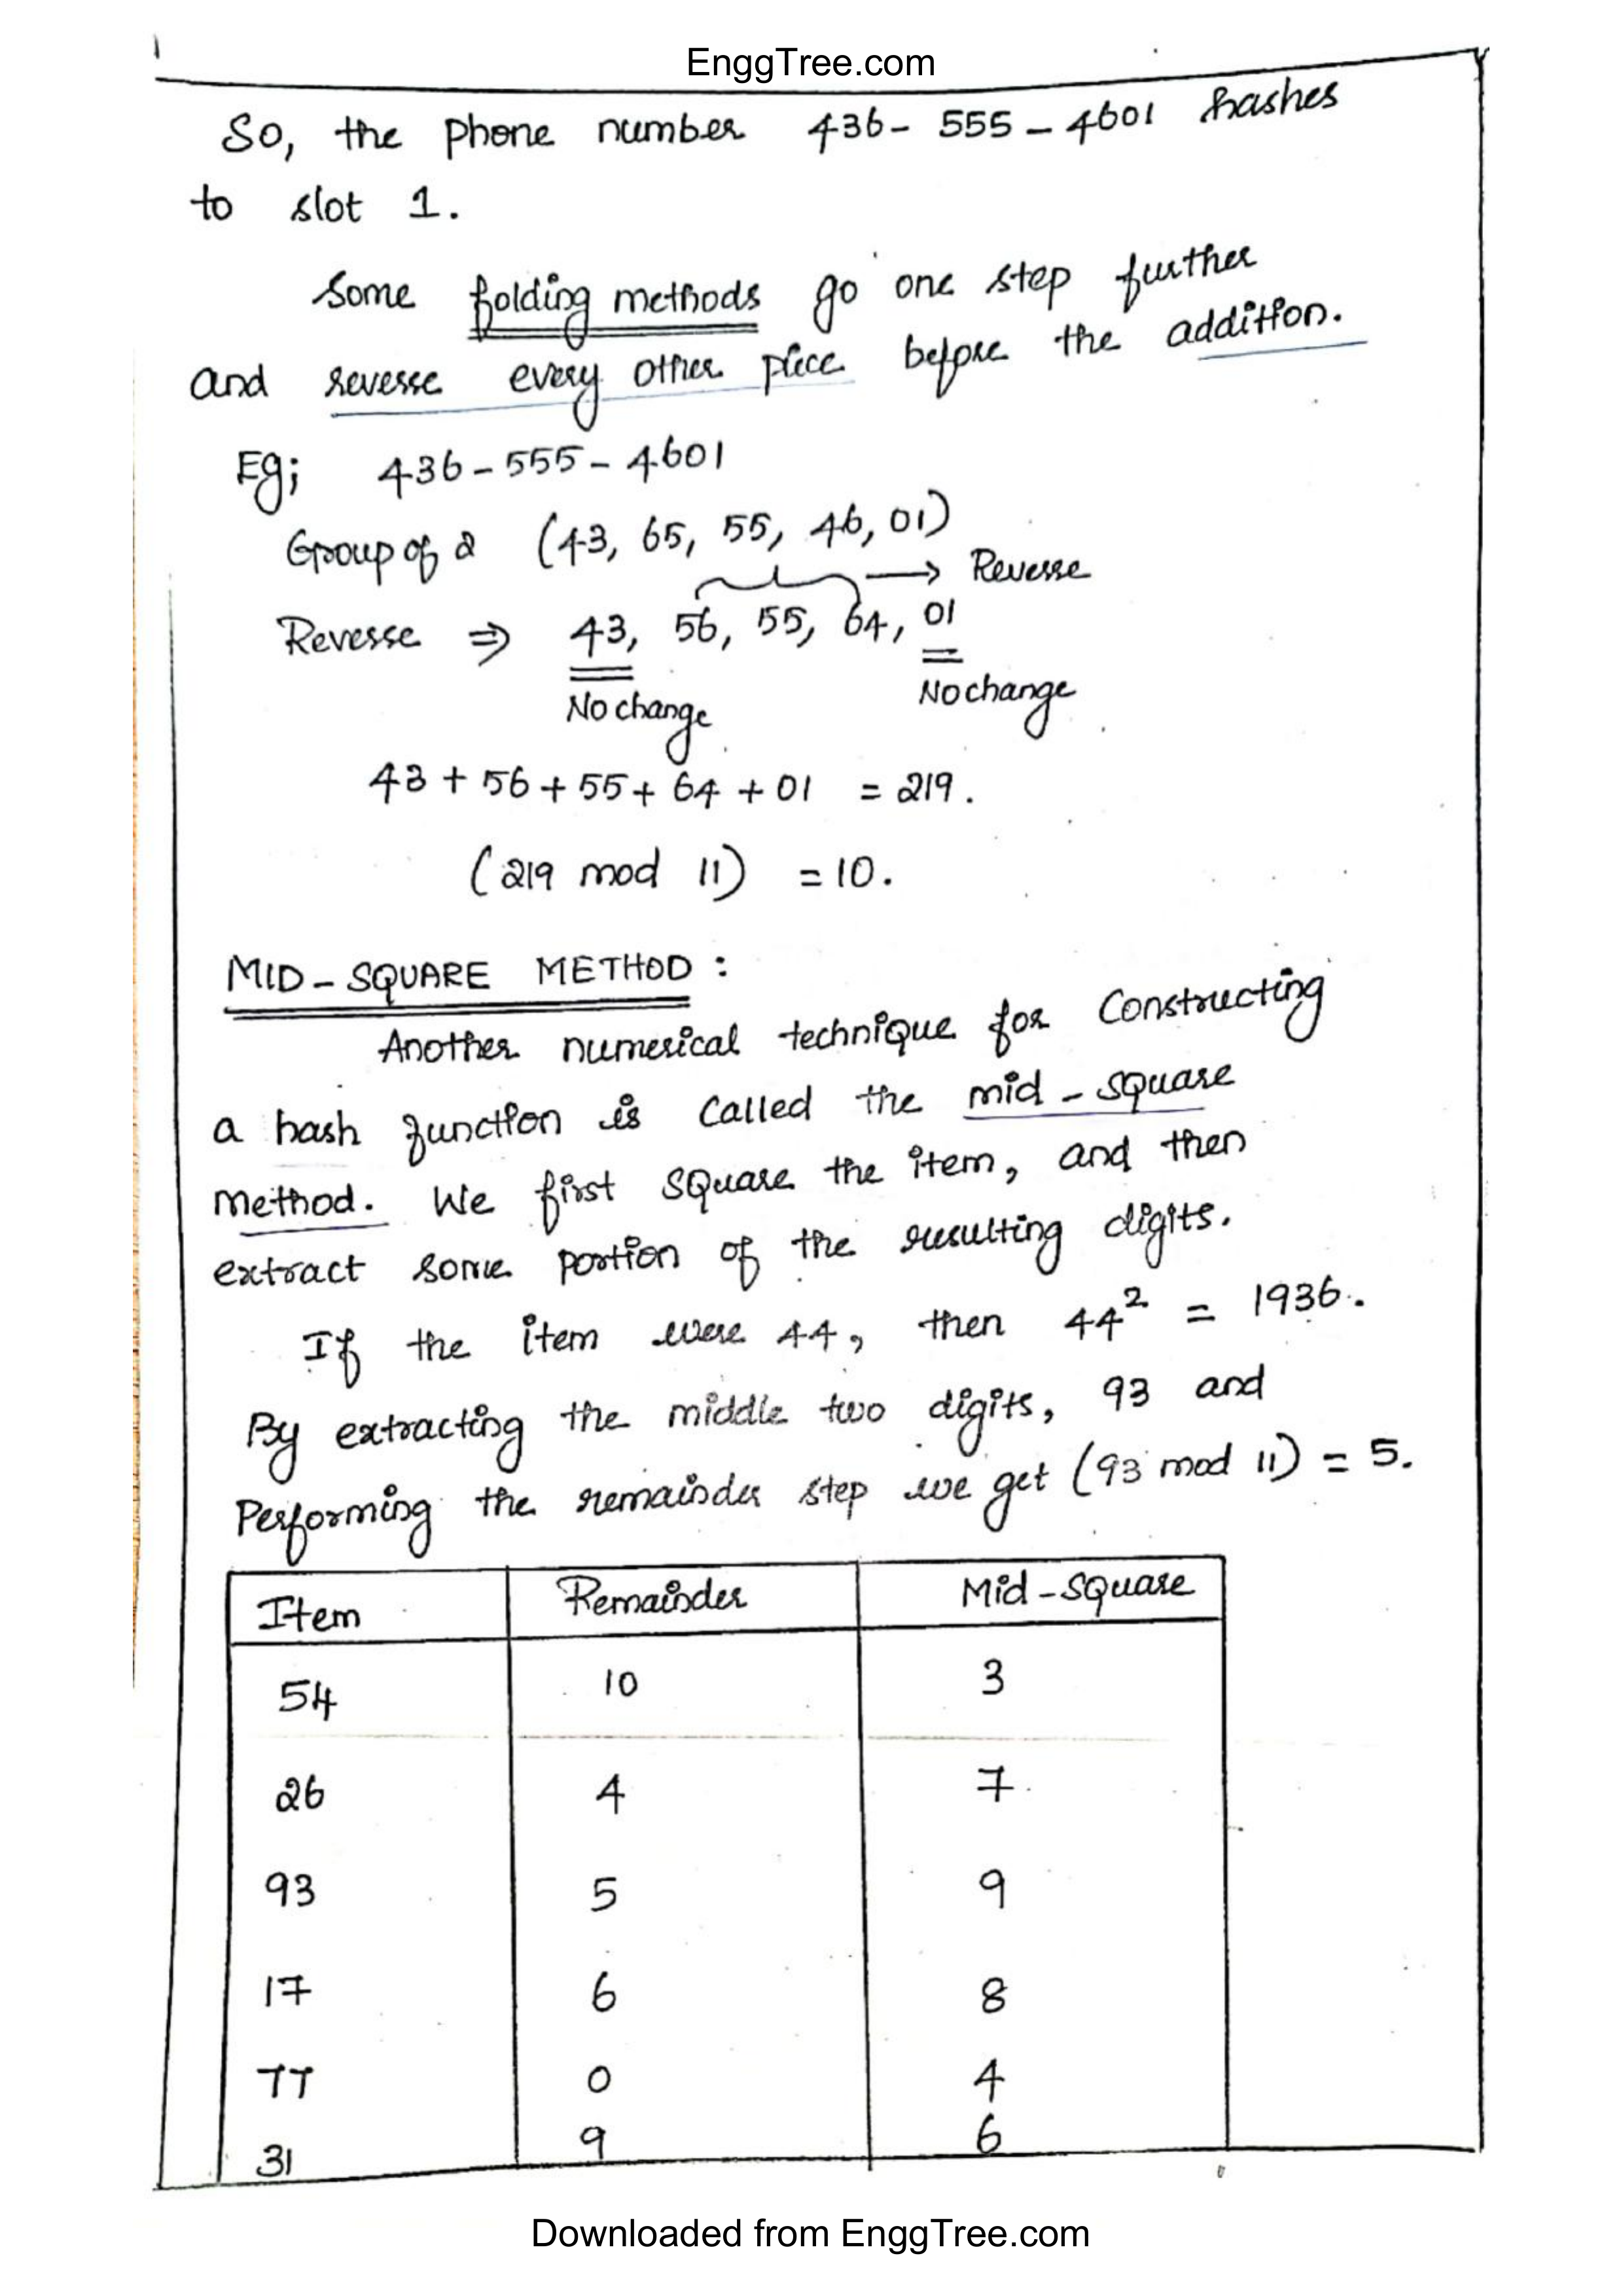 EnggTree.com
So, the phone number 436-555-4601 hashes
to slot 1.
Some folding methods go one step further
and reverse every other piece before the addition.
Eg; 436-555-4601
Group of 2 (43, 65, 55, 46, 01)
→ Reverse
Reverse ⇒ 43, 56, 55, 64, 01
No change No change
43 + 56 + 55 + 64 + 01 = 219.
(219 mod 11) = 10.
MID-SQUARE METHOD :
Another numerical technique for Constructing
a hash function is called the mid-square
method. We first square the item, and then
extract some portion of the resulting digits.
If the item were 44, then 44² = 1936.
By extracting the middle two digits, 93 and
Performing the remainder step we get (93 mod 11) = 5.
Item Remainder Mid-square
54 10 3
26 4 7
93 5 9
17 6 8
77 0 4
31 9 6
Downloaded from EnggTree.com